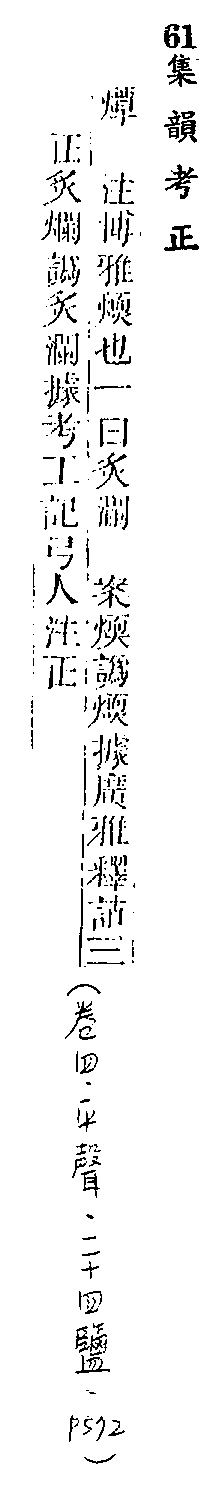 61集韻考正
燂 注博雅煗也一曰炙爓 案煗譌煗據廣雅釋詁三
正炙爓譌炙爓據考工記弓人注正
(卷四、平聲、二十四鹽、P592)